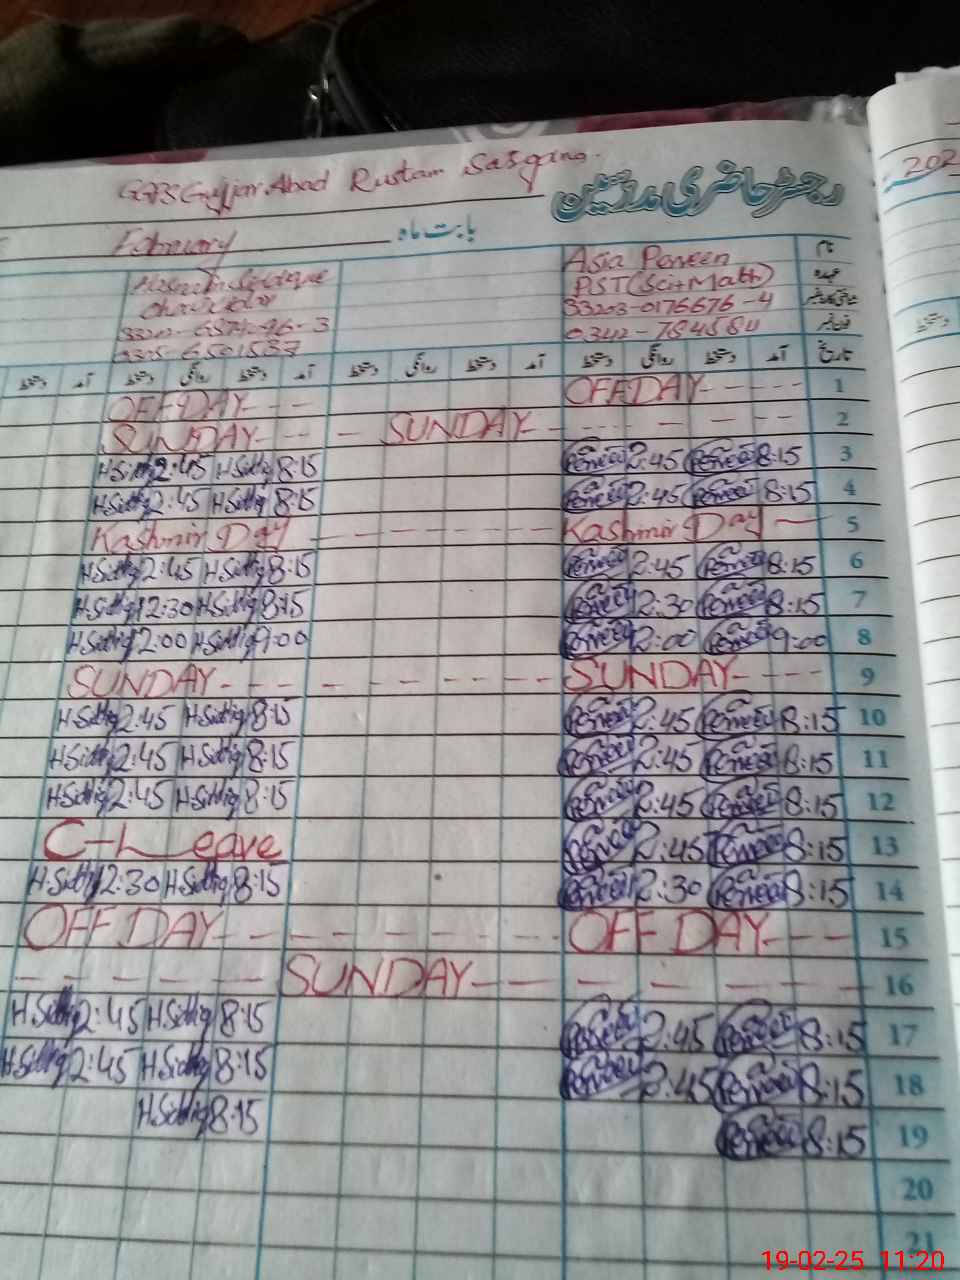 GGPS Gujjar Abad Rustam Sargana.
رجسٹر حاضری مدرسین
202
February بابت ماہ
Asia Perveen نام
Chowkidar PST (Sci+Math) عہدہ
33203-0176676-4 شناختی کارڈ نمبر
0342-784584 فون نمبر
دستخط آمد دستخط روانگی دستخط آمد دستخط روانگی دستخط آمد دستخط روانگی دستخط آمد تاریخ
OFF DAY--- OFF DAY----- 1
SUNDAY--- - SUNDAY - - - - - 2
2:45 H.Siddiq 8:15 Perveen 2:45 Perveen 8:15 3
H.Siddiq 2:45 H.Siddiq 8:15 Perveen 2:45 Perveen 8:15 4
Kashmir Day - - - - - - Kashmir Day — 5
H.Siddiq 2:45 H.Siddiq 8:15 Perveen 2:45 Perveen 8:15 6
H.Siddiq 12:30 H.Siddiq 8:15 Perveen 12:30 Perveen 8:15 7
H.Siddiq 2:00 H.Siddiq 9:00 Perveen 2:00 Perveen 9:00 8
SUNDAY- - - - - - - - SUNDAY- - - - 9
H.Siddiq 2:45 H.Siddiq 8:15 Perveen 2:45 Perveen 8:15 10
H.Siddiq 2:45 H.Siddiq 8:15 Perveen 2:45 Perveen 8:15 11
H.Siddiq 2:45 H.Siddiq 8:15 Perveen 2:45 Perveen 8:15 12
C-Leave Perveen 2:45 Perveen 8:15 13
H.Siddiq 12:30 H.Siddiq 8:15 Perveen 12:30 Perveen 8:15 14
OFF DAY- - - - - - - - OFF DAY- - - 15
- - - - - - SUNDAY - - - - - - - 16
H.Siddiq 2:45 H.Siddiq 8:15 Perveen 2:45 Perveen 8:15 17
H.Siddiq 2:45 H.Siddiq 8:15 Perveen 2:45 Perveen 8:15 18
H.Siddiq 8:15 Perveen 8:15 19
20
21
19-02-25 11:20